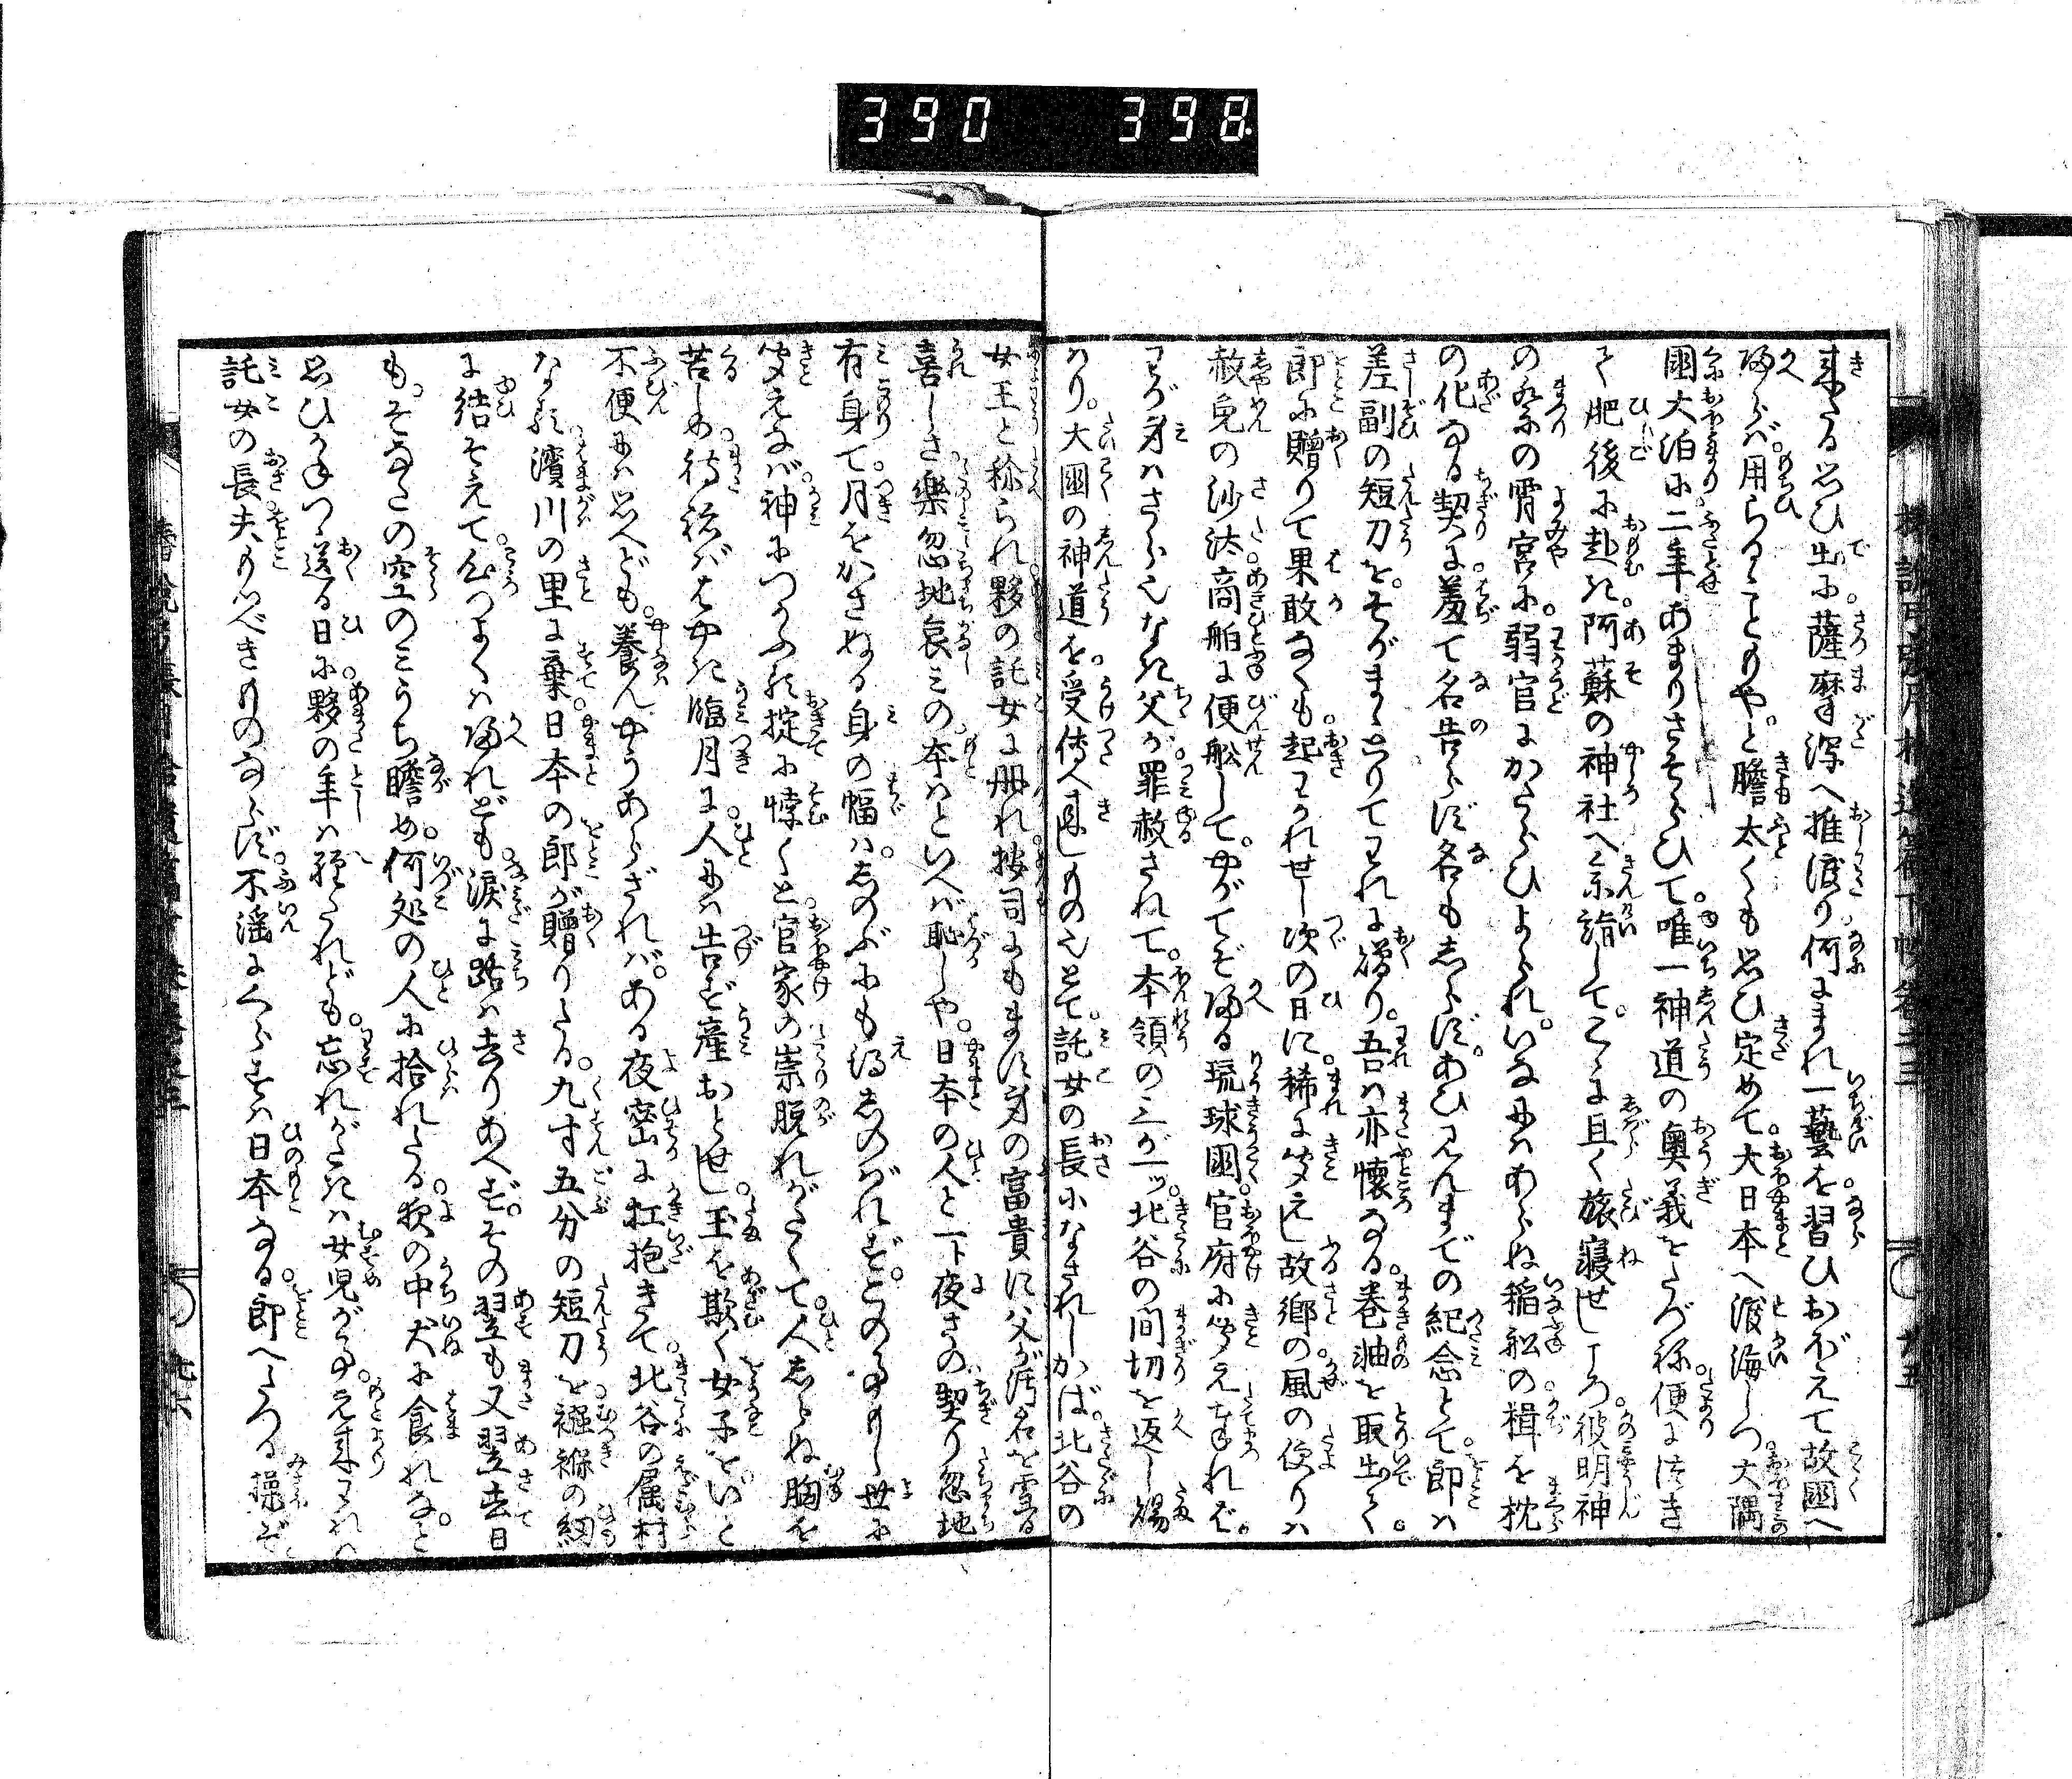 390 398
来たる思ひ出に薩摩潟へ推渡り何にまれ一藝を習ひおぼえて故國へ
帰らば。用らるゝことりや。と膽太くも思ひ定めて大日本へ渡海しつ大隅
國大泊に二年あまりさそらひて。唯一神道の奥義をたづね。便につき
て肥後に赴き。阿蘇の神社へ参詣して。こゝに且く旅寝せしころ彼明神
の祭の宵宮に。弱官にかたらひよられ。いなにはあらぬ稲舩の楫を枕
の化なる契に。羞て名告らず名もしらず。あひ見んまでの紀念とて。郎は
差副の短刀を。そがまゝとりてわれに贈り。吾は亦懐なる巻軸を取出て。
郎に贈りて果敢なくも。起わかれせし次の日に。稀に聞えし故郷の風の便りは
赦免の沙汰。商舶に便舩して。やがてぞ帰る琉球國。官府に聞え奉れば。
わが身はさらなり父が。罪赦されて。本領の三が一ッ。北谷の間切を返し賜
はり。大國の神道を。受傳へ来しものなりとて。託女の長になされしかば。北谷の
女王と称られ夥の託女に冊れ。按司にもます身の富貴に父が汚名を雪る
喜しさ。樂忽地哀みの。本はといへば恥しや。日本の人と一下夜さの。契り忽地
有身て。月をかさぬる身の幅は。しのぶにも得しのがれず。この事もし世に
聞えなば。神につかふる掟に悖くと。官家の祟脱れがたくて。人しらぬ胸を
苦しめ。待祢ばはやき臨月に。人には告ず産おとせし。玉を欺く女子を。いと
不便には思へども。養んやうあらざれば。ある夜密に扛抱きて。北谷の属村
なる。濱川の里に棄。日本の郎が贈りたる。九寸五分の短刀を。襁褓の紐
に結そえて。心つよくは帰れども。涙に路は去りあへず。その翌も又翌去日
も。そなたの空のみうち瞻め。何処の人に拾れたる。夜の中犬に食れなと
思ひかねつゝ送る日に。夥の年は経たれども。忘れがたきは女児が事。元来われは
託女の長。夫もつべきものならず。不淫にくらせしは日本なる。郎へたつる操ぞと